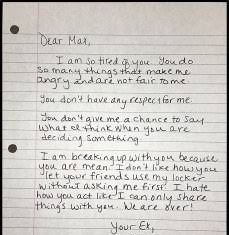 Dear Max,
I am so tired of you. You do
so many things that make me
angry and are not fair to me.
You don't have any respect for me.
You don't give me a chance to say
what I think when you are
deciding something.
I am breaking up with you because
you are mean. I don't like how you
let your friends use my locker
without asking me first. I hate
how you act like I can only share
things with you. We are over!
Your Ex,